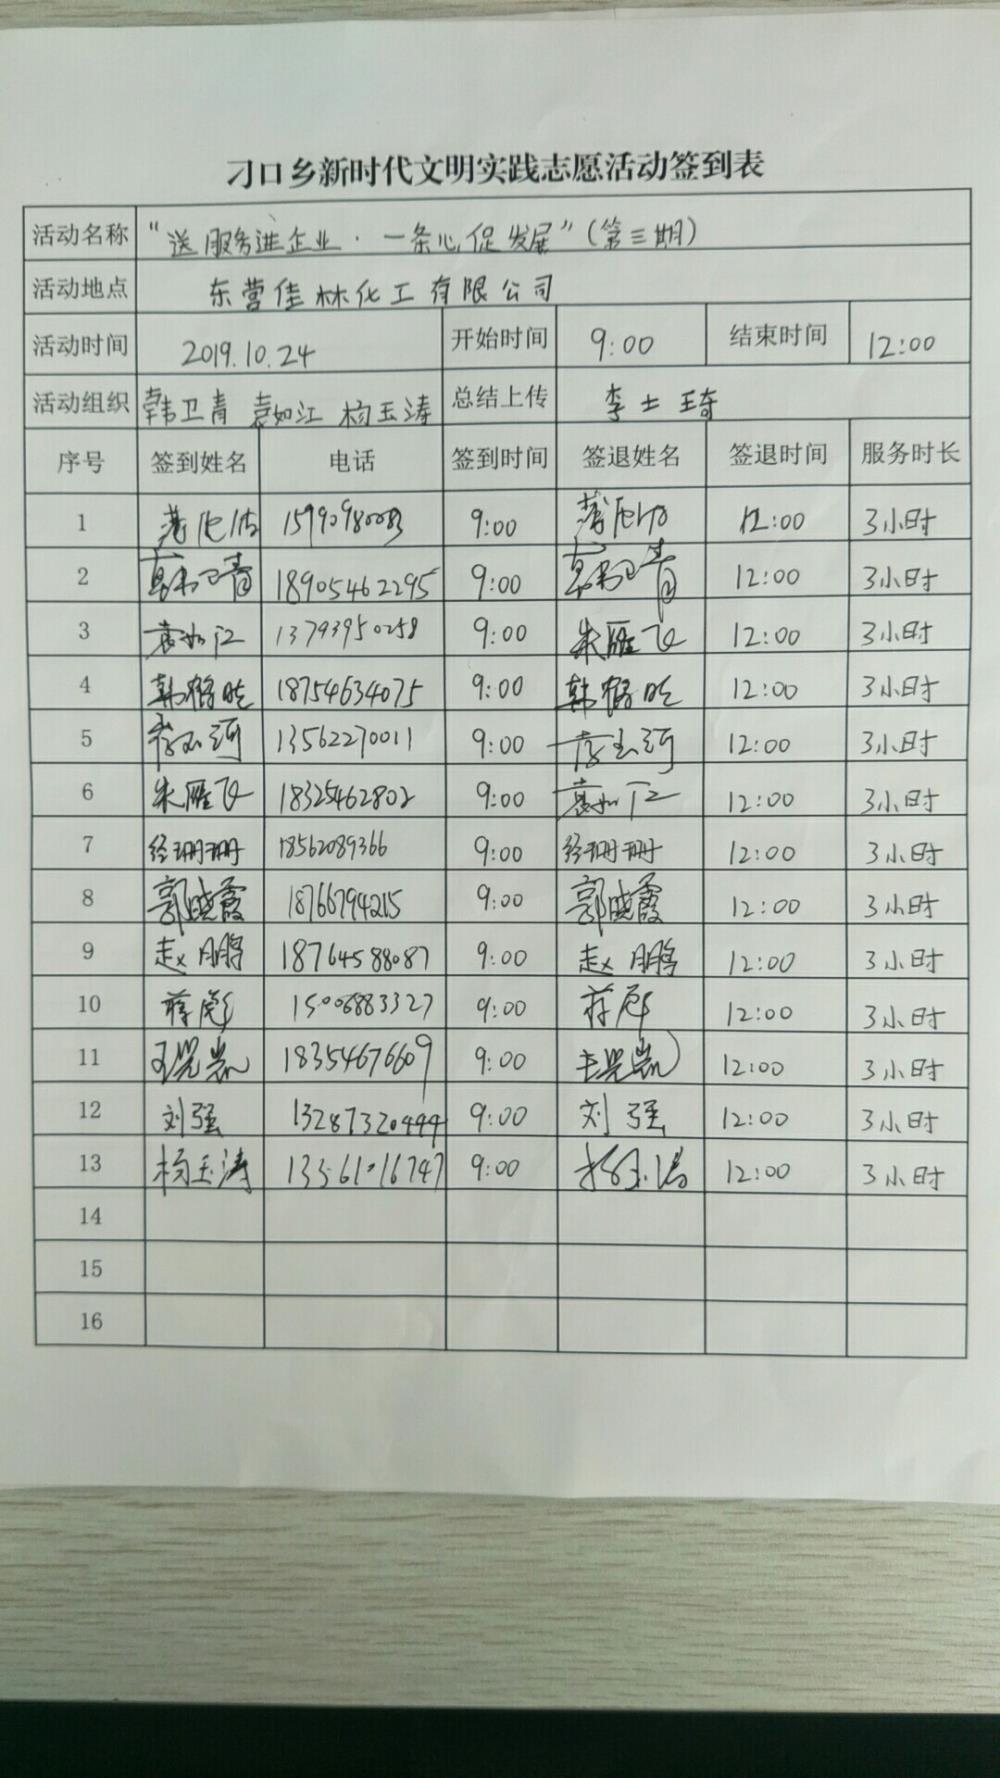 刁口乡新时代文明实践志愿活动签到表
活动名称 “送服务进企业·一条心促发展”(第三期)
活动地点 东营佳林化工有限公司
活动时间 2019.10.24 开始时间 9:00 结束时间 12:00
活动组织 韩卫青 袁如江 杨玉涛 总结上传 李士琦
序号 签到姓名 电话 签到时间 签退姓名 签退时间 服务时长
1 9:00 12:00 3小时
2 韩卫青 18905462295 9:00 韩卫青 12:00 3小时
3 袁如江 13793950258 9:00 朱雁飞 12:00 3小时
4 18754634075 9:00 12:00 3小时
5 13562270011 9:00 12:00 3小时
6 朱雁飞 18325462802 9:00 袁如江 12:00 3小时
7 经珊珊 18562089366 9:00 经珊珊 12:00 3小时
8 郭晓霞 18766794215 9:00 郭晓霞 12:00 3小时
9 赵鹏 18764588087 9:00 赵鹏 12:00 3小时
10 蒋彪 15006883327 9:00 蒋彪 12:00 3小时
11 18354676609 9:00 12:00 3小时
12 刘强 13287320444 9:00 刘强 12:00 3小时
13 杨玉涛 13561016747 9:00 杨玉涛 12:00 3小时
14
15
16